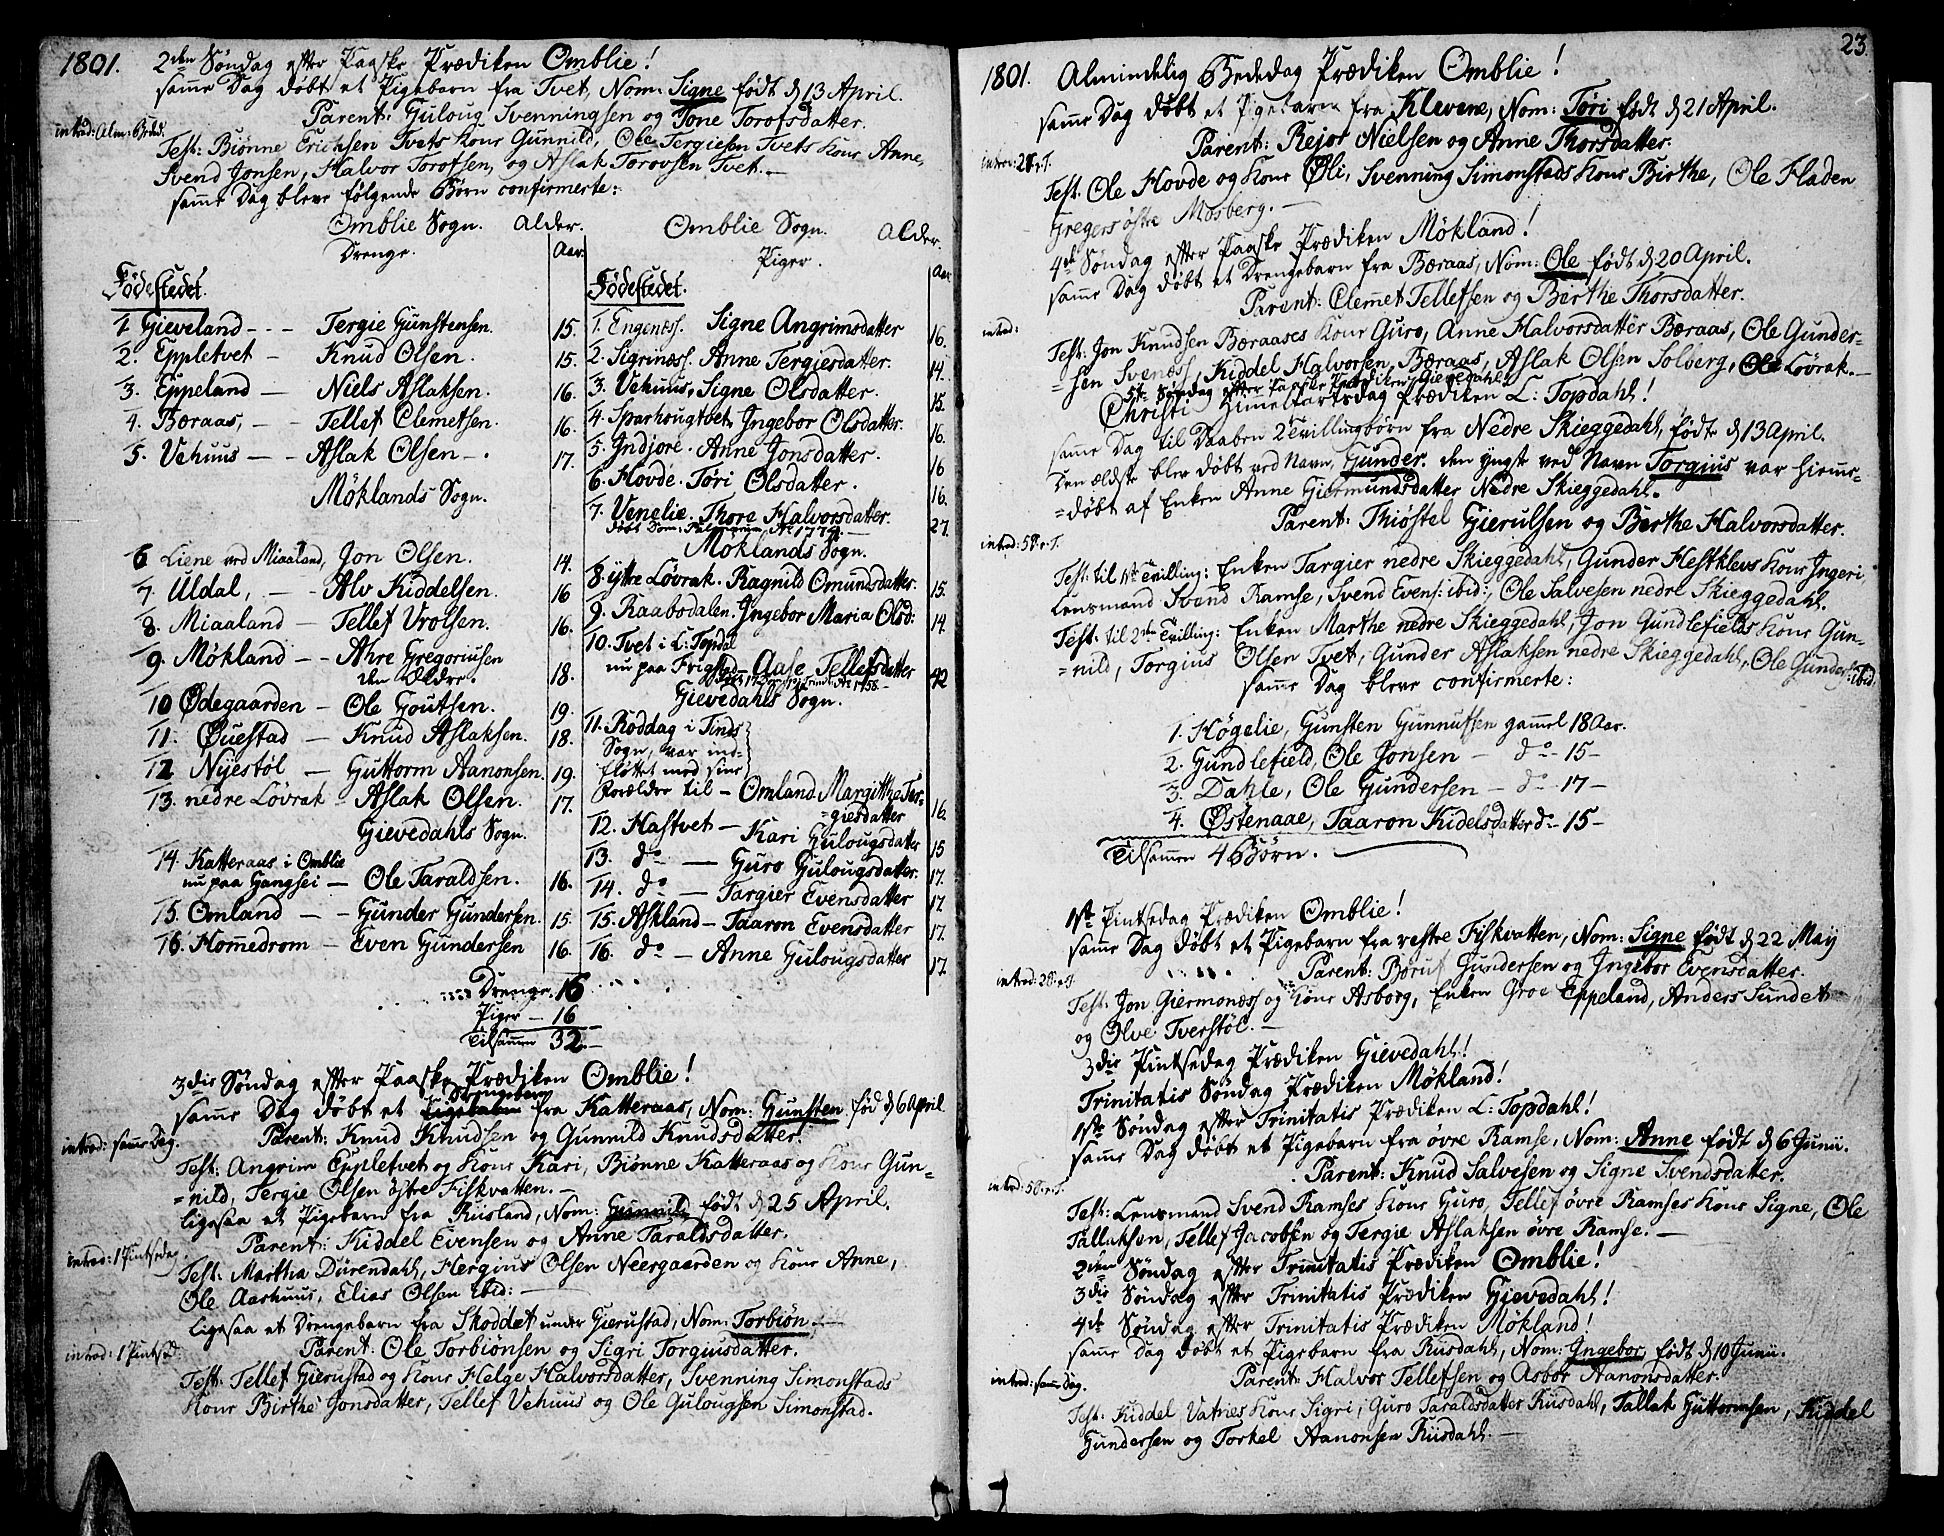 1801. 2den Søndag efter Paaske Prædiken Omblie!
samme Dag døbt et Pigebarn fra Tvet, Nom: Signe født d 13 April.
Parent: Guloug Svenningsen og Tone Torofsdatter.
introd: Alm: Bed:
Test: Biønne Erichsen Tvets Kone Gunnild, Ole Tergiesen Tvets Kone Anne,
Svend Jonsen, Halvor Torofsen, og Aslak Torovsen Tvet.—
samme Dag bleve følgende Børn confirmerte:
Omblie Sogn. Alder.
Drenge. Aar.
Fødestedet.
1. Gieveland - - - Tergie Gunstensen. 15.
2. Eppletvet - Knud Olsen. 15.
3. Eppeland - Niels Aslaksen. 16.
4. Bœraas, - - Tellef Clemetsen. 16.
5. Vehuus - - Aslak Olsen -. 17.
Møklands Sogn.
6. Liene ved Miaaland, Jon Olsen. 14.
7. Uldal, - - Alv Kiddelsen. 16
8. Miaaland - Tellef Vrolsen. 16.
9. Møkland - - Ahre Gregoriusen
den Ældre. 18.
10 Ødegaarden - Ole Goutsen. 19.
11. Øuestad - Knud Aslaksen. 18.
12 Nyestøl - Guttorm Aanonsen. 19.
13. nedre Løvrak - Aslak Olsen. 17.
Gievedahls Sogn.
14. Katteraas i Omblie
nu paa Gangsei - Ole Taraldsen. 16.
15. Omland - - Gunder Gundersen. 15.
16. Hommedrom - Even Gundersen 16.
Omblie Sogn. Alder.
Piger. Aar
Fødestedet.
1. Engenæss. Signe Angrimsdatter 16.
2. Sigrinæss. Anne Tergiesdatter. 14.
3. Vehuus, Signe Olsdatter. 15.
4. Sparhougtvet, Ingebor Olsdatter. 16.
5. Indjore. Anne Jonsdatter. 16
6. Hovde. Tøri Olsdatter. 16.
7. Venelie. Thore Halvorsdatter. 27.
Møklands Sogn.
8. yttre Løvrak. Ragnild Omundsdatter. 15.
9. Raabodalen. Ingebor Maria Olsd: 14.
10. Tvet i L: Topdal
nu paa Frigstad - Aase Tellefsdatter 42
Gievedahls Sogn.
11. Roddag i Tinds
Sogn, var ind-
fløttet med sine
Forældre til - Omland. Margitthe Ter-
=giesdatter 16.
12. Hastvet - Kari Gulougsdatter 15
13. do - Guro Gulougsdatter. 17.
14. do - Targier Evensdatter 17.
15. Askland - Taaron Evensdatter 17.
16. do - Anne Gulougsdatter 17.
Drenge. 16
Piger - 16
Tilsammen 32.
3die Søndag efter Paaske Prædiken Omblie!
Drengebarn
samme Dag døbt et Pigebarn fra Katteraas, Nom: Gunsten fød d 6 April
introd: samme Dag. Parent: Knud Knudsen og Gunnild Knudsdatter.
Test: Angrim Eppletvet og Kone Kari, Biønne Katteraas og Kone Gun-
=nild, Tergie Olsen østre Fiskvatten.—
ligesaa et Pigebarn fra Riisland, Nom: Gunnild født d 25 April.
Parent: Kiddel Evensen og Anne Taraldsdatter.
introd: 1 Pintsedag.
Test: Martha Dürendahl, Hergius Olsen Neergaarden og Kone Anne,
Ole Aashuus, Elias Olsen ibid:—
ligesaa et Drengebarn fra Skoddet under Gierustad, Nom: Torbiøn.—
introd: 1 Pintsd: Parent: Ole Torbiønsen og Sigri Torguisdatter.
Test: Tellef Gierustad og Kone Helge Halvorsdatter, Svenning Simonstads
Kone Birthe Jonsdatter, Tellef Vehuus og Ole Gulougsen Simonstad.
23
1801. Almindelig Bededag Prædiken Omblie!
samme Dag døbt et Pigebarn fra Klevene, Nom: Tøri født d 21 April.
Parent: Rejor Nielsen og Anne Thorsdatter.
Test: Ole Hovde og Kone Øli, Svenning Simonstads Kone Birthe, Ole Fladen
Gregers østre Mosberg.—
4de Søndag efter Paaske Prædiken Møkland!
samme Dag døbt et Drengebarn fra Bœraas, Nom: Ole født d 20 April.
Parent: Clemet Tellefsen og Berthe Thorsdatter.
introd:
Test: Jon Knudsen Bœraases Kone Guro, Anne Halvorsdatter Bœraas, Ole Gunder-
=sen Svenæss, Kiddel Halvorsen Bœraas, Aslak Olsen Solberg, Ole Løvrak.—
5te Søndag efter Paaske Prædiken Gievedahl.
Christi Himelfartsdag Prædiken L: Topdahl!
samme Dag til Daaben 2 Tvillingbørn fra Nedre Skieggedahl, født d 13 April.
Den ældste blev døbt ved Navn, Gunder. den yngste ved Navn Torgius var hieme-
=døbt af Enken Anne Giermundsdatter Nedre Skieggedahl.
Parent: Thiøstel Gierulsen og Berthe Halvorsdatter.
Test: til 1ste Tvilling: Enken Targier nedre Skieggedahl, Gunder Hestklevs Kone Ingeri,
Lensmand Svend Ramse, Svend Evens: ibid:, Ole Salvesen nedre Skieggedahl.
Test: til 2den Tvilling: Enken Marthe nedre Skieggedahl, Jon Gundlefields Kone Gun-
=nild, Torgius Olsen Tvet, Gunder Aslaksen nedre Skieggedahl, Ole Gunders: ibid:
samme Dag bleve confirmerte:
1. Høgelie, Gunsten Gunnufsen gammel 18 Aar.
2. Gundlefield, Ole Jonsen - do - 15 -
3. Dahle, Ole Gundersen - do - 17 -
4. Østenaae, Taaron Kidelsdatter do - 15 -
Tilsammen 4 Børn.
1ste Pintsedag Prædiken Omblie!
samme Dag døbt et Pigebarn fra vestre Fiskvatten, Nom: Signe født d 22 May
Parent: Boruf Gundersen og Ingebor Evensdatter.
Test: Jon Giermonæss og Kone Asborg, Enken Groe Eppeland, Anders Sundet
og Olve Tverstøl.—
3die Pintsedag Prædiken Gievedahl!
Trinitatis Søndag Prædiken Møkland!
1ste Søndag efter Trinitatis Prædiken L: Topdahl!
samme Dag døbt et Pigebarn fra øvre Ramse, Nom: Anne født d 6 Junii.
Parent: Knud Salvesen og Signe Svendsdatter.
Test: Lensmand Svend Ramses Kone Guro, Tellef øvre Ramses Kone Signe, Ole
Tallaksen, Tellef Jacobsen og Tergie Aslaksen øvre Ramse.—
2den Søndag efter Trinitatis Prædiken Omblie!
3die Søndag efter Trinitatis Prædiken Gievedahl!
4de Søndag efter Trinitatis Prædiken Møkland!
samme Dag døbt et Pigebarn fra Riisdahl, Nom: Ingebor, født d 10 Junii.
introd: samme Dag. Parent: Halvor Tellefsen og Asbor Aanonsdatter.
Test: Kiddel Vatnes Kone Sigri, Guro Taraldsdatter Riisdahl, Tallak Guttormsen, Kiddel
Gundersen og Torkel Aanonsen Riisdahl.—